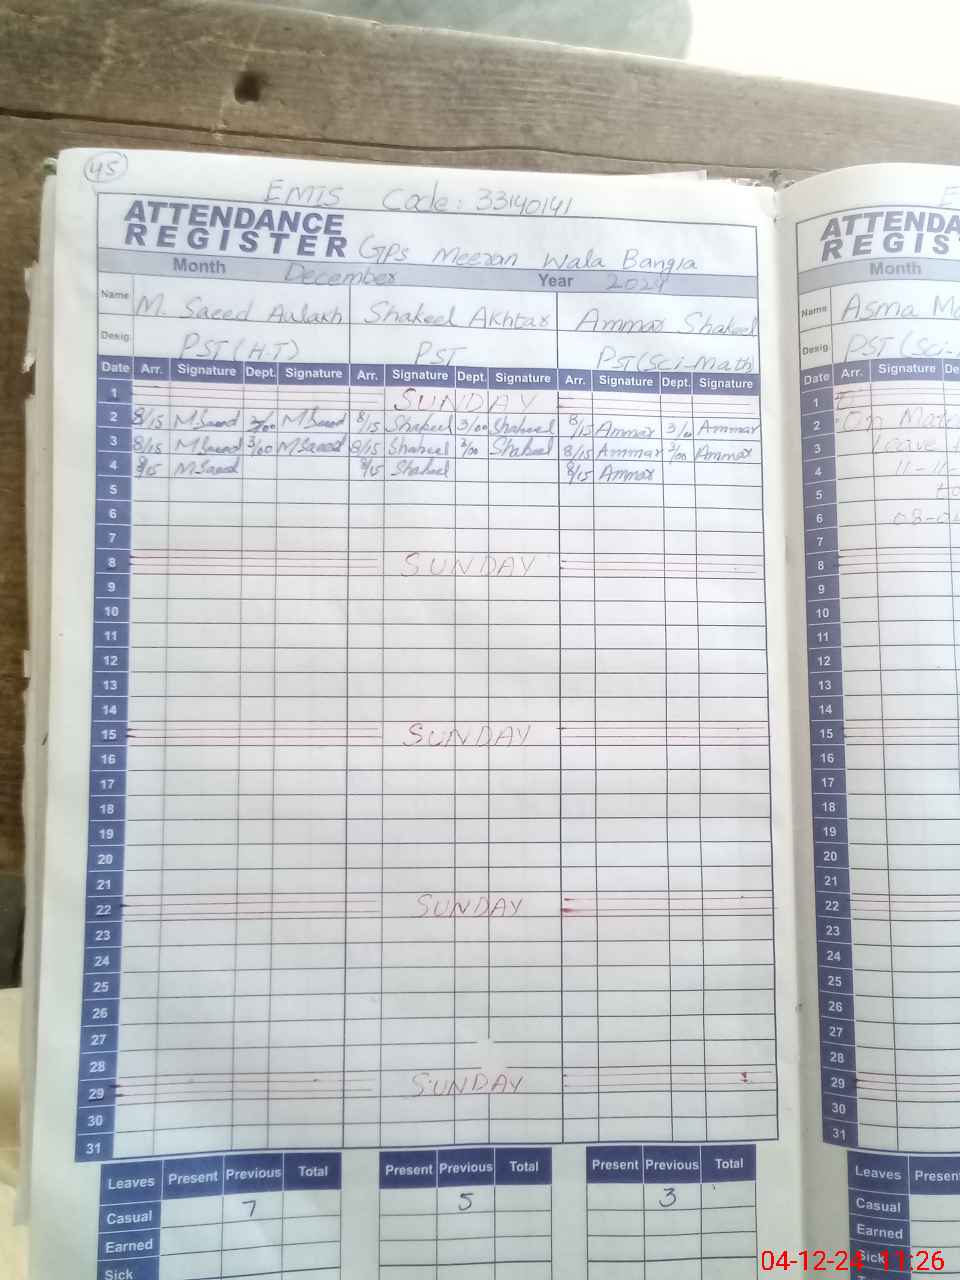 45
EMIS Code: 33140141
ATTENDANCE
REGISTER GPS Meeran Wala Bangla
Month December Year 2024
Name M. Saeed Aulakh Shakeel Akhtar Ammar Shakeel
Desig. PST (H-T) PST PST (Sci-Math)
Date Arr. Signature Dept. Signature Arr. Signature Dept. Signature Arr. Signature Dept. Signature
1 SUNDAY
2 8/15 MSaeed 3/00 MSaeed 8/15 Shakeel 3/00 Shakeel 8/15 Ammar 3/00 Ammar
3 8/15 MSaeed 3/00 MSaeed 8/15 Shakeel 3/00 Shakeel 8/15 Ammar 3/00 Ammar
4 8/15 MSaeed 8/15 Shakeel 8/15 Ammar
5
6
7
8 SUNDAY
9
10
11
12
13
14
15 SUNDAY
16
17
18
19
20
21
22 SUNDAY
23
24
25
26
27
28
29 SUNDAY
30
31
Leaves Present Previous Total Present Previous Total Present Previous Total
Casual 7 5 3
Earned
Sick
E
ATTENDA
REGIST
Month
Name Asma
Desig. PST (Sci-
Date Arr. Signature De
1
2 On
3 Leave
4 11-11-
5 to
6 08-0
7
8
9
10
11
12
13
14
15
16
17
18
19
20
21
22
23
24
25
26
27
28
29
30
31
Leaves Present
Casual
Earned
Sick
04-12-24 11:26